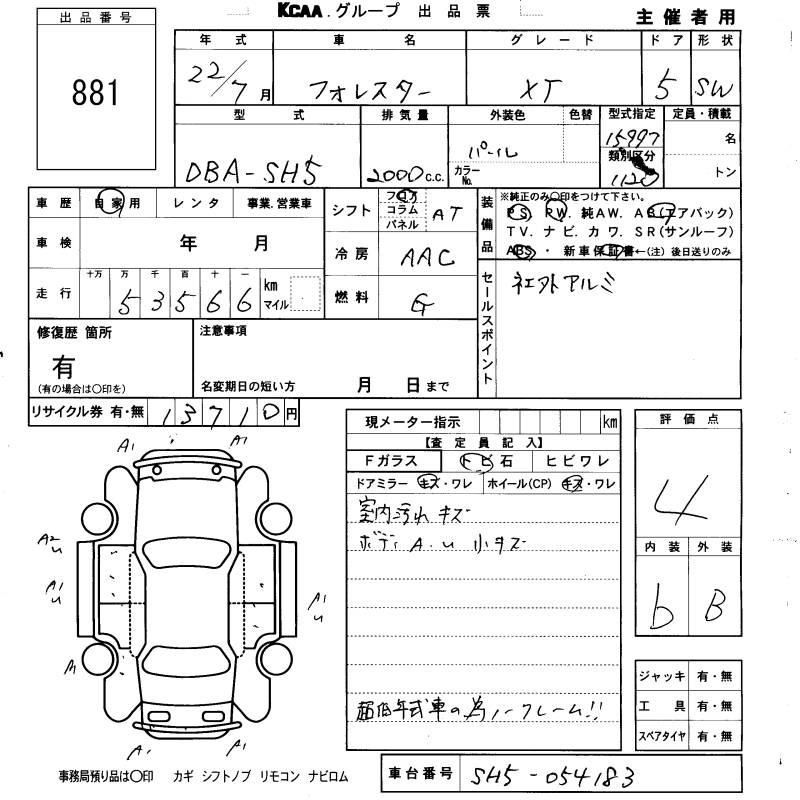 KCAA.グループ 出品票
主催者用
出品番号
881
年式 車名 グレード ドア 形状
22/7月 フォレスター XT 5 SW
型式 排気量 外装色 色替 型式指定 定員・積載
DBA-SH5 2000c.c. パール カラーNo. 15997 名
類別区分
1120 トン
車歴 自家用 レンタ 事業.営業車
車検 年 月
走行 十万 万 千 百 十 一 km マイル
5 3 5 6 6
シフト フロア コラム パネル AT
冷房 AAC
燃料 G
装備品
※純正のみ〇印をつけて下さい。
PS. PW. 純AW. AB(エアバック)
TV. ナビ. カワ. SR(サンルーフ)
ABS ・ 新車保証書←(注) 後日送りのみ
セールスポイント
社外アルミ
修復歴 箇所
有
(有の場合は〇印を)
注意事項
名変期日の短い方 月 日まで
リサイクル券 有・無 13710円
現メーター指示 km
【査定員記入】
Fガラス トビ石 ヒビワレ
ドアミラー キズ・ワレ ホイール(CP) キズ・ワレ
室内汚れ キズ
ボディ A.U 小キズ
超低年式車の為ノークレーム!!
評価点
4
内装 外装
b B
ジャッキ 有・無
工具 有・無
スペアタイヤ 有・無
A1 A1
A2
U
A1
U
A1
U
A1
A1 A1
事務局預り品は〇印 カギ シフトノブ リモコン ナビロム
車台番号 SH5-054183